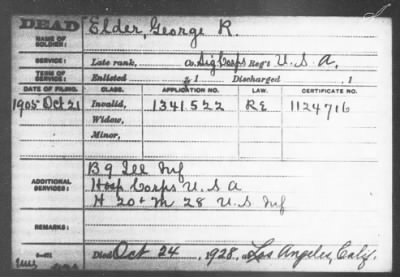 DEAD
NAME OF SOLDIER: Elder, George R.
SERVICE: Late rank, Co. Sig Corps Reg't U.S.A.
TERM OF SERVICE: Enlisted , 1 Discharged , 1
DATE OF FILING. CLASS. APPLICATION NO. LAW. CERTIFICATE NO.
1905 Oct 21 Invalid, 1341522 RE 1124716
Widow,
Minor,
ADDITIONAL SERVICES: B 9 Ill Inf
Hosp Corps U S A
H 20 + M 28 U.S Inf
REMARKS:
Died Oct 24, 1928, Los Angeles, Calif.